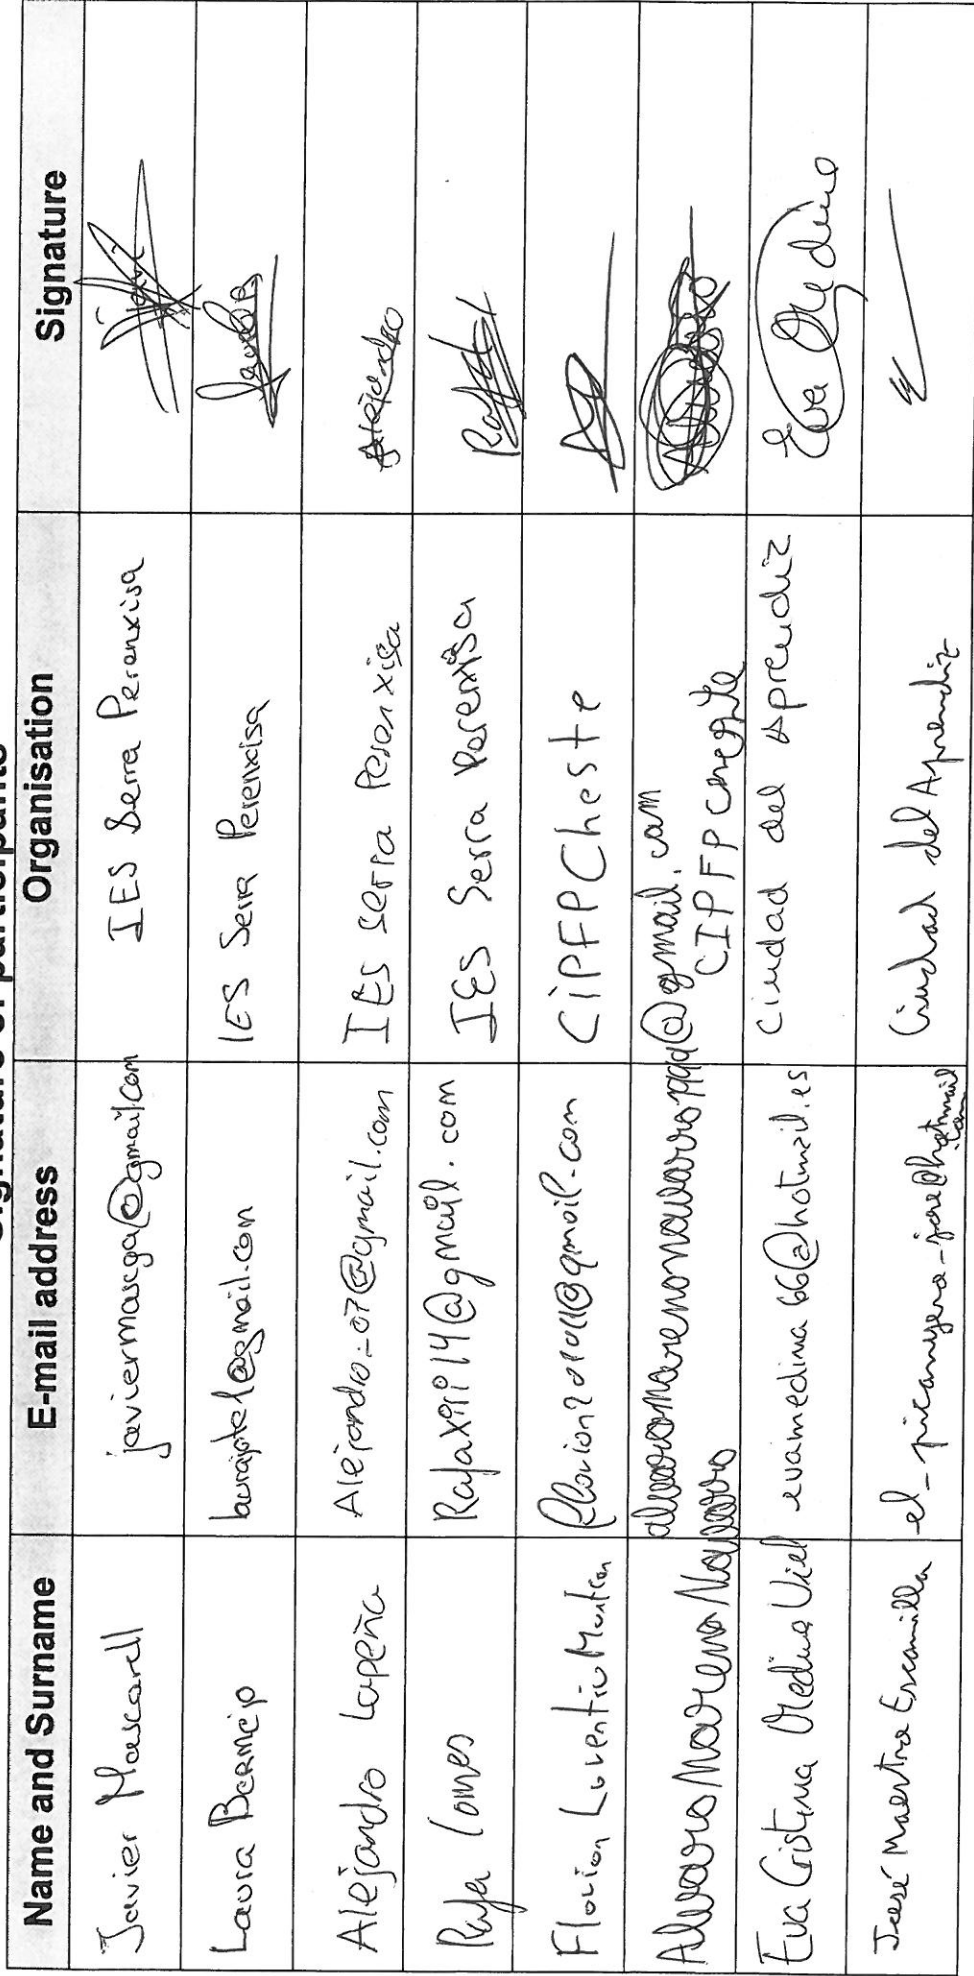 Signature of participants
Name and Surname E-mail address Organisation Signature
Javier Mascarell javiermascga@gmail.com IES Serra Perenxisa Javi
Laura Bermejo @gmail.com IES Serra Perenxisa Laura
Alejandro Lapeña Alejandro_07@gmail.com IES Serra Perenxisa Alejandro
Rafa Comes Rafaxiri14@gmail.com IES Serra Perenxisa Rafa
Florion Lurentiu @gmail.com CiPFPCheste
Alvaro Moreno Navarro alvaromorenonavarro @gmail.com CIPFP
Eva Cristina Medina Viel evamedina66@hotmail.es Ciudad del Aprendiz Eva Medina
José Maestro Escamilla el-picanyero-jose@hotmail.com Ciudad del Aprendiz